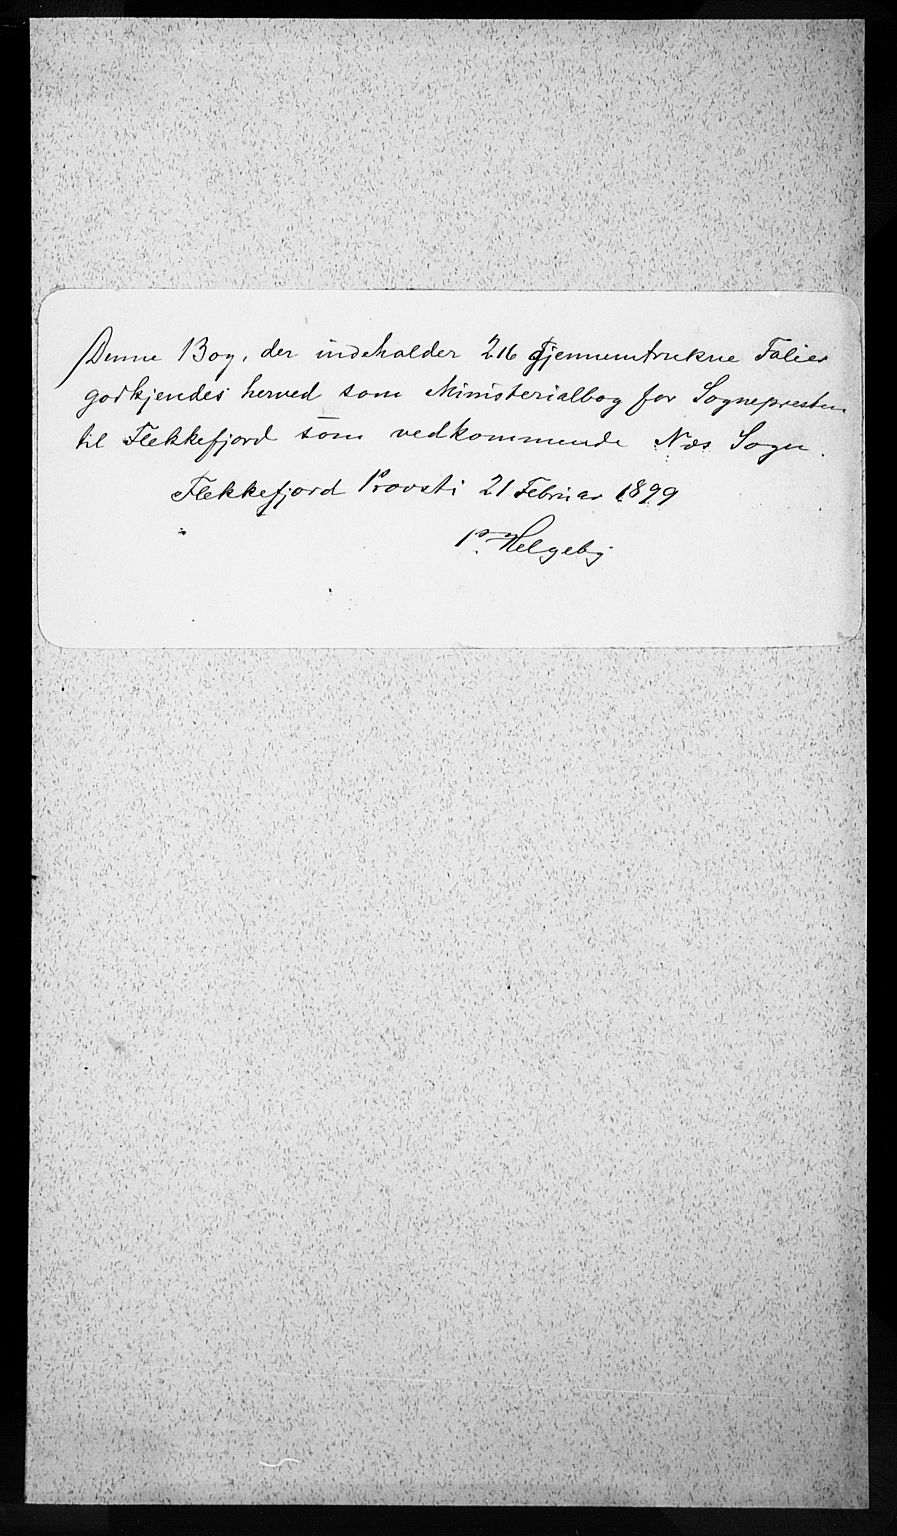 Denne Bog, der indeholder 216 gjennemtrukne Folier
godkjendes herved som Ministerialbog for Sognepresten
til Flekkefjord som vedkommende Nes Sogn.
Flekkefjord Provsti 21 Februar 1899
P. Helgeby